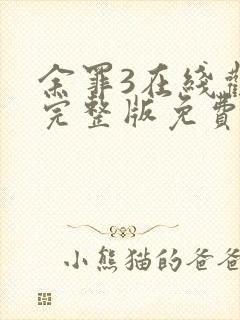 余罪3在线
完整版免費
小熊猫的爸爸